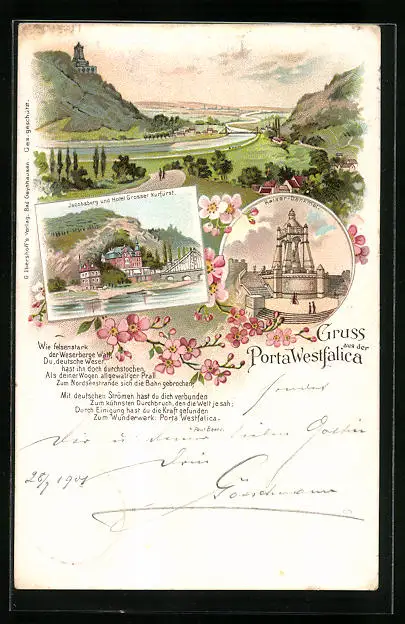 G. Ibershoff's Verlag, Bad Oeynhausen. Ges. geschützt.
Jacobsberg und Hotel Grosser Kurfürst.
Kaiser-Denkmal.
Gruss
aus der
Porta Westfalica
Wie felsenstark
der Weserberge Wall,
Du, deutsche Weser,
hast ihn doch durchstochen,
Als deiner Wogen allgewalt'ger Prall
Zum Nordseestrande sich die Bahn gebrochen;
Mit deutschen Strömen hast du dich verbunden
Zum kühnsten Durchbruch, den die Welt je sah;
Durch Einigung hast du die Kraft gefunden
Zum Wunderwerk: Porta Westfalica.
sendet
Dir u deiner lieben
Dein